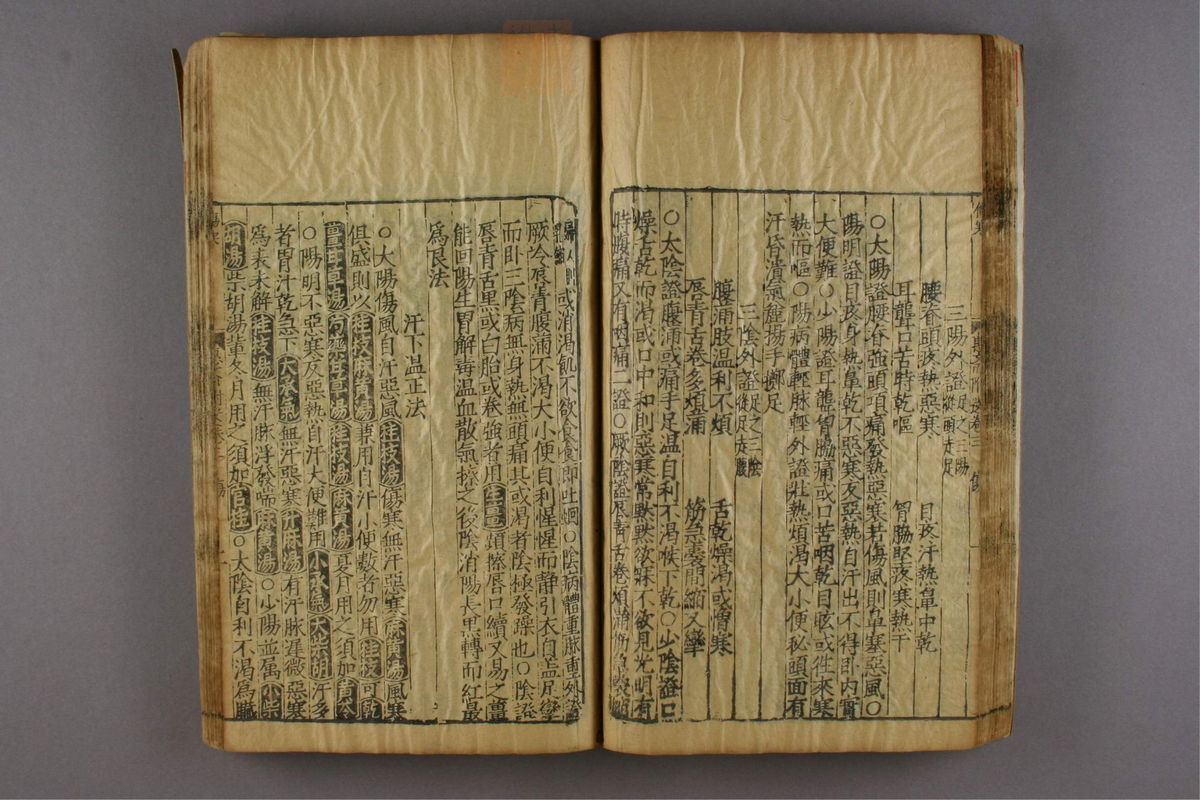 三陽外證足之三陽從頭走足
腰脊頭疼熱惡寒 目疼汗熱鼻中乾
耳聾口苦時乾嘔 胷脇堅疼寒熱干
○太陽證腰脊強頭項痛發熱惡寒若傷風則鼻塞惡風○
陽明證目疼身熱鼻乾不惡寒反惡熱自汗出不得卧内實
大便難○少陽證耳聾胷脇痛或口苦咽乾目眩或徃來寒
熱而嘔○陽病體輕脉輕外證壯熱煩渴大小便秘頭面有
汗昏潰氣麄揚手擲足
三陰外證足之三陰從足走腹
腹滿肢温利不煩 舌乾燥渴或憎寒
唇青舌卷多煩滿 筋急囊間縮又攣
○太陰證腹滿或痛手足温自利不渴喉下乾○少陰證口
燥舌乾而渴或口中和則惡寒常默默欲寐不欲見光明有
時腹痛又有咽痛二證○厥陰證唇青舌卷煩滿
或消渴飢不欲食食即吐蛔○陰病體重脉重外證
厥冷唇青腹滿不渴大小便自利惺惺而静引衣自盖足攣
而卧三陰病無身熱無頭痛其或渴者陰極發躁也○陰證
唇青舌黒或白胎或卷強者用生薑頻擦唇口續又易之薑
能回陽生胃解毒温血散氣擦之後陰消陽長黒轉而紅最
爲良法
汗下温正法
○太陽傷風自汗惡風桂枝湯傷寒無汗惡寒麻黄湯風寒
俱盛則以桂枝麻黄湯兼用自汗小便數者勿用桂枝可乾
薑甘草湯芍藥甘草湯桂枝湯麻黄湯夏月用之須加黄芩
○陽明不惡寒反惡熱自汗大便難用小承氣大柴胡汗多
者胃汗乾急下大承氣無汗惡寒升麻湯有汗脉遲微惡寒
爲表未解桂枝湯無汗脉浮發喘麻黄湯○少陽並属小柴
胡湯柴胡湯輩冬月用之須加官桂○太陰自利不渴爲臓